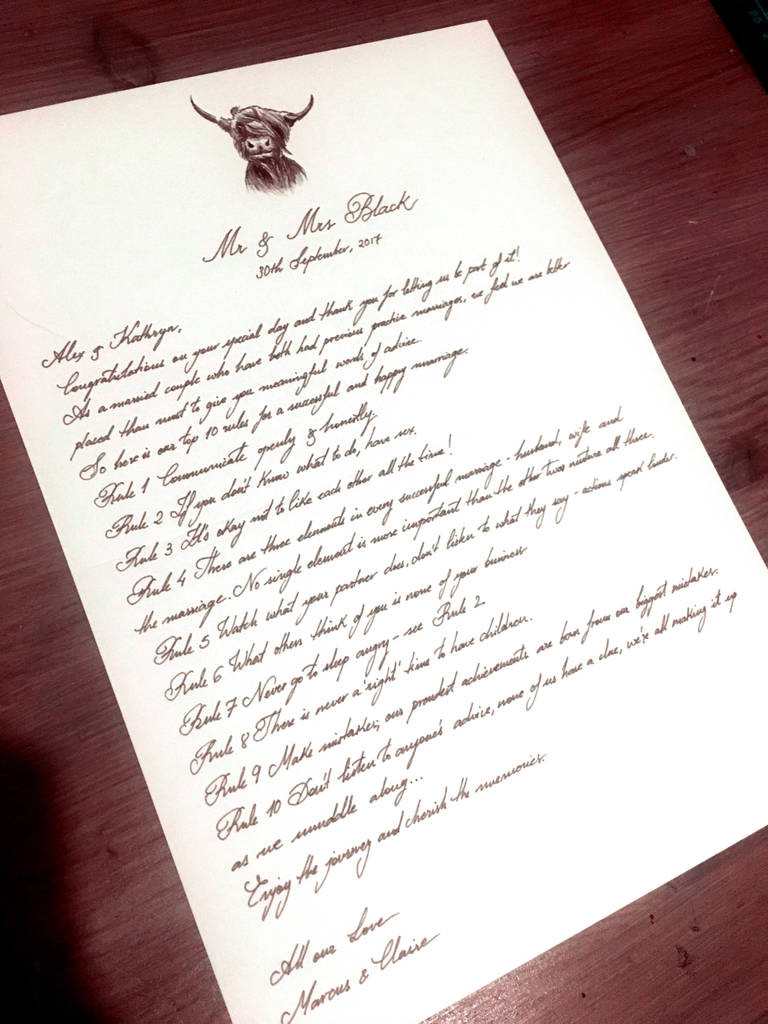 Mr & Mrs Black
30th September, 2017
Alex & Kathryn,
Congratulations on your special day and thank you for letting us be part of it!
As a married couple who have both had previous practice marriages, we feel we are better
placed than most to give you meaningful words of advice.
So here is our top 10 rules for a successful and happy marriage.
Rule 1 Communicate openly & honestly.
Rule 2 If you don't know what to do, have sex.
Rule 3 It's okay not to like each other all the time!
Rule 4 There are three elements in every successful marriage - husband, wife and
the marriage. No single element is more important than the other two nurture all three.
Rule 5 Watch what your partner does, don't listen to what they say - actions speak louder.
Rule 6 What others think of you is none of your business
Rule 7 Never go to sleep angry - see Rule 2
Rule 8 There is never a 'right' time to have children.
Rule 9 Make mistakes; our proudest achievements are born from our biggest mistakes.
Rule 10 Don't listen to anyone's advice, none of us have a clue, we're all making it up
as we muddle along...
Enjoy the journey and cherish the memories.
All our Love
Marcus & Claire